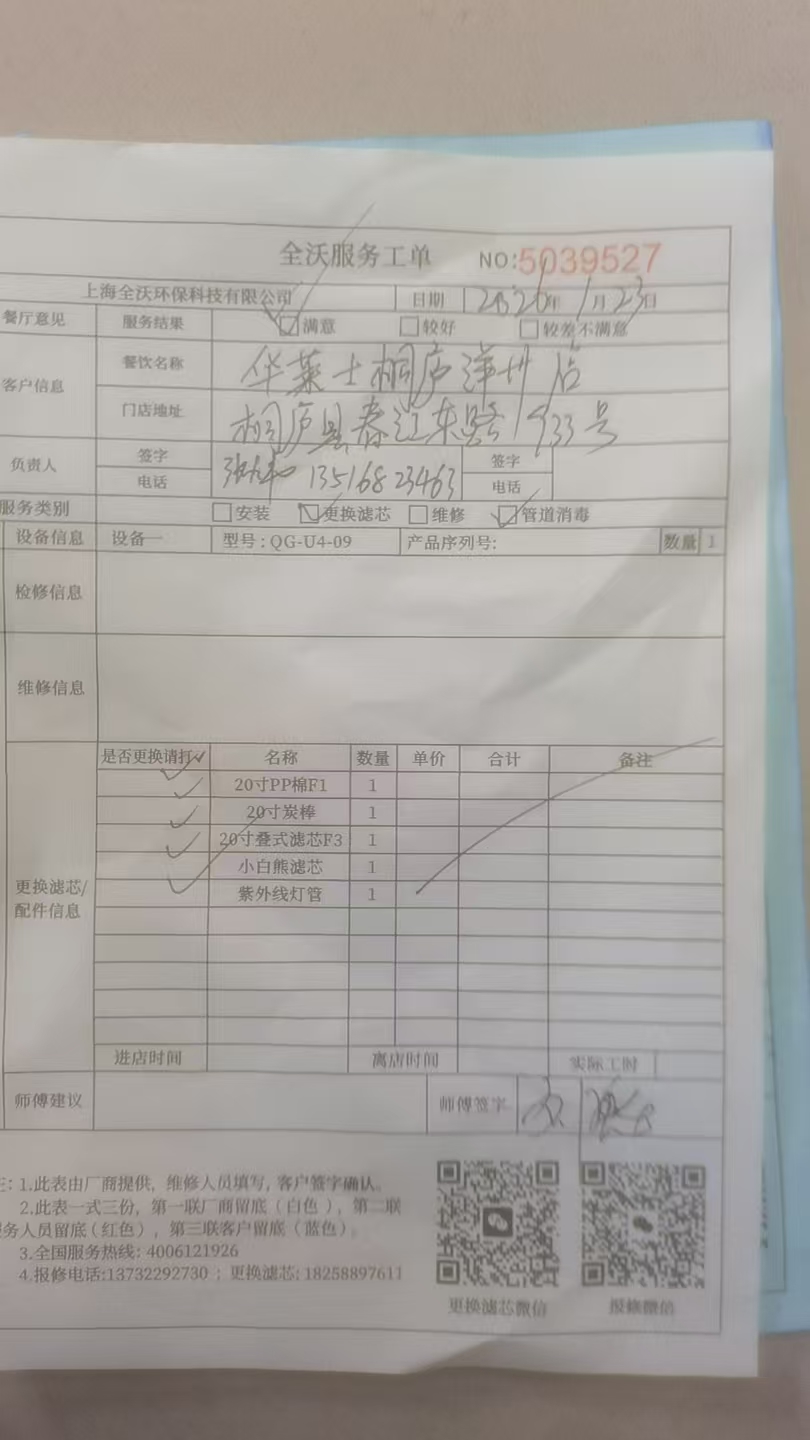 全沃服务工单 NO:5039527
上海全沃环保科技有限公司 日期 2026年1月23日
餐厅意见 服务结果 满意 较好 较差不满意
客户信息 餐饮名称 华莱士桐庐洋洲店
门店地址 桐庐县春江东路1933号
负责人 签字 签字
电话 13516823463 电话
服务类别 安装 更换滤芯 维修 管道消毒
设备信息 设备一 型号:QG-U4-09 产品序列号: 数量 1
检修信息
维修信息
是否更换请打✓ 名称 数量 单价 合计 备注
20寸PP棉F1 1
20寸炭棒 1
20寸叠式滤芯F3 1
小白熊滤芯 1
紫外线灯管 1
更换滤芯/
配件信息
进店时间 离店时间 实际工时
师傅建议 师傅签字
注：1.此表由厂商提供，维修人员填写，客户签字确认。
2.此表一式三份，第一联厂商留底（白色），第二联
务人员留底（红色），第三联客户留底（蓝色）。
3.全国服务热线: 4006121926
4.报修电话:13732292730 ; 更换滤芯: 18258897611
更换滤芯微信 报修微信